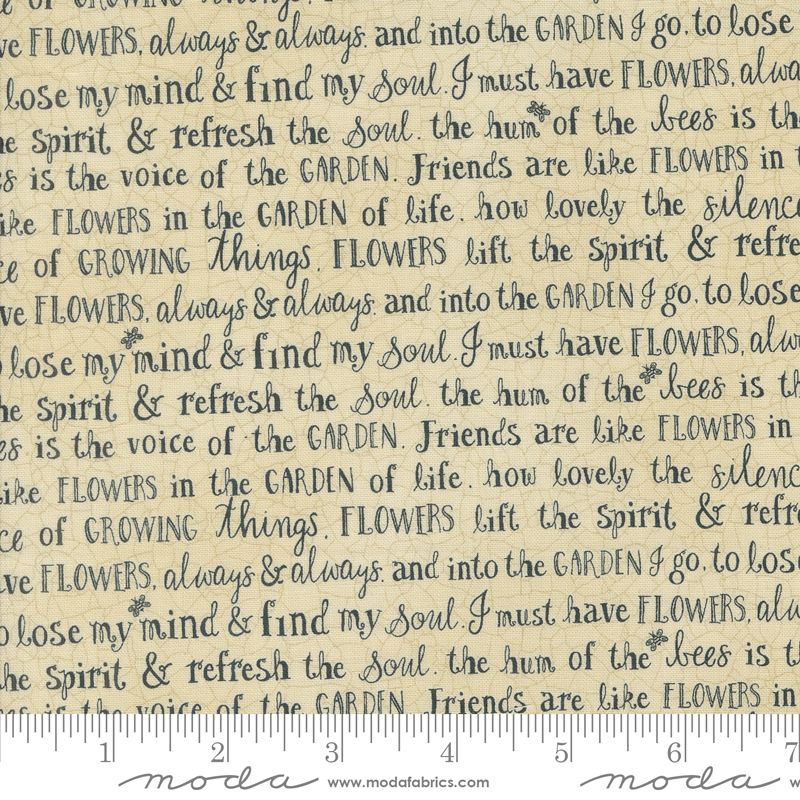 of GROWING things.
FLOWERS, always & always. and into the GARDEN I go, to lose
lose my mind & find my soul. I must have FLOWERS, alwa
he spirit & refresh the soul. the hum of the bees is th
es is the voice of the GARDEN. Friends are like FLOWERS in t
ike FLOWERS in the GARDEN of life. how lovely the silence
ce of GROWING things. FLOWERS lift the spirit & refre
ve FLOWERS, always & always. and into the GARDEN I go, to lose
o lose my mind & find my soul. I must have FLOWERS, alw
he spirit & refresh the soul. the hum of the bees is th
es is the voice of the GARDEN. Friends are like FLOWERS in
like FLOWERS in the GARDEN of life. how lovely the silenc
ce of GROWING things. FLOWERS lift the spirit & refr
ave FLOWERS, always & always. and into the GARDEN I go, to lose
o lose my mind & find my soul. I must have FLOWERS, alw
the spirit & refresh the soul. the hum of the bees is t
es is the voice of the GARDEN. Friends are like FLOWERS in
1 2 3 4 5 6 7
moda www.modafabrics.com moda w